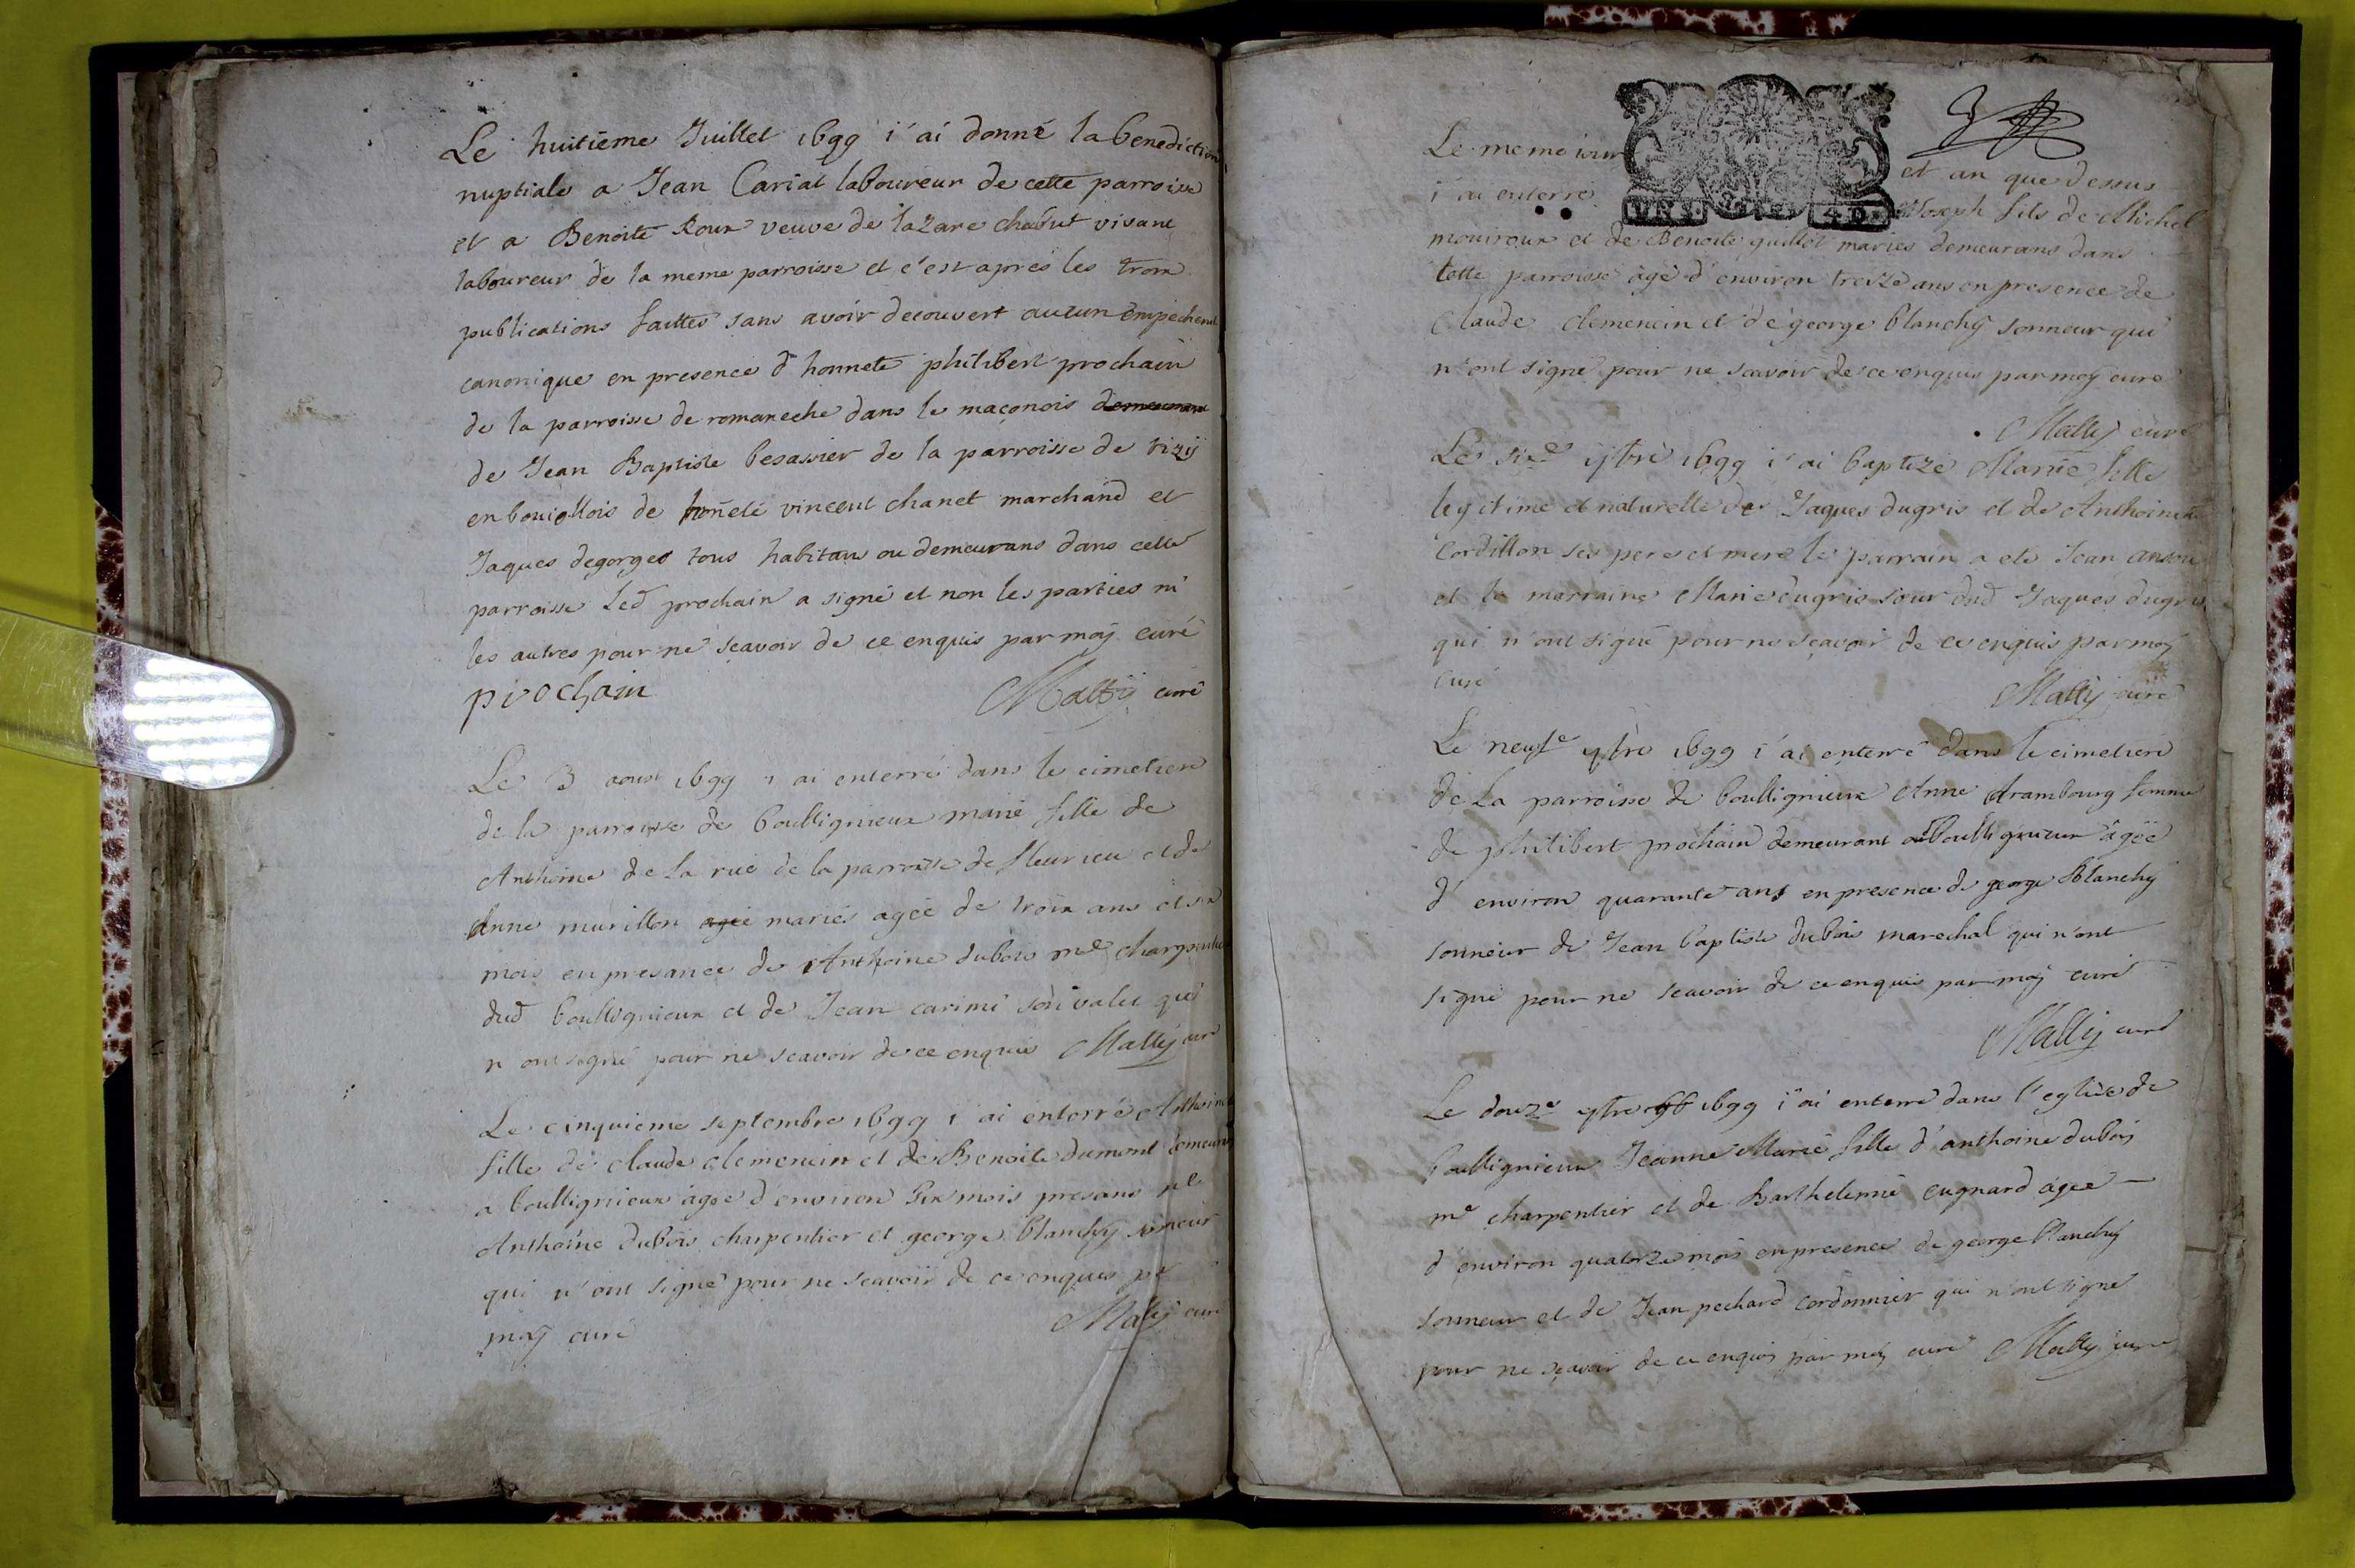 Le huitième Juillet 1699 i'ai donné la benediction
nuptiale a Jean Cariat laboureur de cette parroisse
et a Benoite Roux veuve de lazare chabut vivant
laboureur de la meme parroisse et c'est après les trois
publications faittes sans avoir decouvert aucun empechemt
canonique en presence d'honnete philibert prochain
de la parroisse de romaneche dans le maconois demeurant
de Jean Baptiste besassier de la parroisse de
en de honeté vincent chanet marchand et
Jaques degorges tous habitans ou demeurans dans cette
parroisse Led prochain a signé et non les parties ni
les autres pour ne sçavoir de ce enquis par moÿ curé
prochain Mallÿ curé
Le 3 aoust 1699 i ai enterré dans le cimetiere
de la parroisse de boullignieux marie fille de
Anthoine de la rue de la parroisse de fleurieu et de
Anne murillon agée mariés agée de trois ans et six
mois en presance de Anthoine dubois me
dud boullignieux et de Jean carimé son valet qui
n ont signé pour ne scavoir de ce enquis Mallÿ curé
Le cinquieme septembre 1699 i ai enterré Anthoinette
fille de claude clemencin et de Benoite dumont demeurans
a boullignieux agée d'environ six mois presans
Anthoine dubois charpentier et george blanchÿ sonneur
qui n'ont signé pour ne scavoir de ce enquis par
moÿ curé Mallÿ curé
Le meme iour et an que dessus
i'ai enterré Joseph fils de Michel
mouiroux et de Benoite guillet mariés demeurans dans
cette parroisse agé d'environ treize ans en presence de
Claude clemencin et de george blanchÿ sonneur qui
n'ont signé pour ne scavoir de ce enquis par moÿ curé
Mallÿ curé
Le sixe 7bre 1699 i'ai baptizé Marie fille
legitime et naturelle de Jaques dugris et de Anthoinette
Cordillon ses pere et mere le parrain a eté Jean
et la marraine Marie dugris sœur dud Jaques dugris
qui n'ont signé pour ne sçavoir de ce enquis par moÿ
curé Mallÿ curé
Le neufe 7bre 1699 i'ai enterré dans le cimetiere
de La parroisse de boullignieux Anne Arambourg femme
de philibert prochain demeurant a boulligneux agée
d'environ quarante ans en presence de george blanchÿ
sonneur de Jean baptiste dubois marechal qui n'ont
signé pour ne scavoir de ce enquis par moÿ curé
Mallÿ curé
Le douze 7bre 1699 i'ai enterré dans l'eglise de
boulligneux Jeanne Marie fille d'anthoine dubois
me charpentier et de Barthelemie cugnard agée
d'environ quatorze mois en presence de george blanchÿ
sonneur et de Jean pechard cordonnier qui n'ont signé
pour ne sçavoir de ce enquis par moÿ curé Mallÿ curé